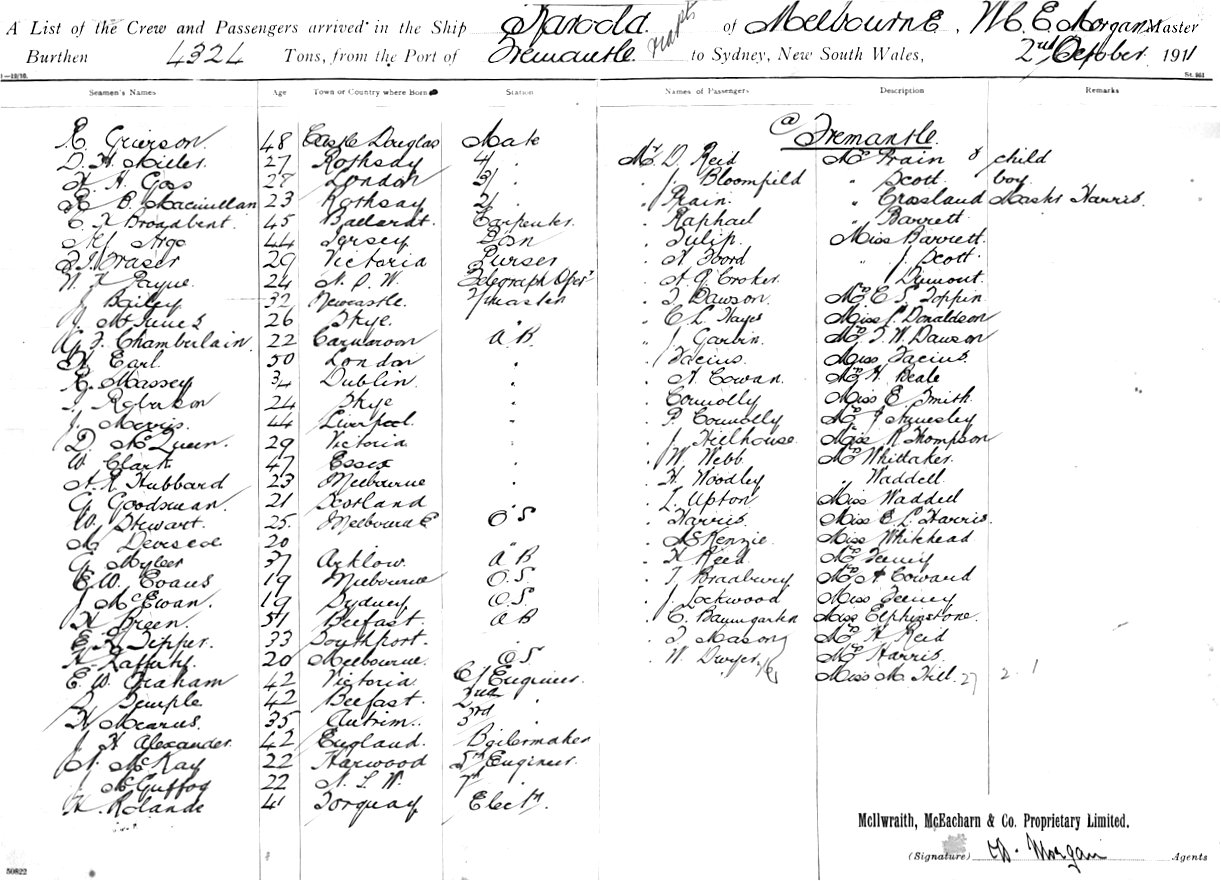 A List of the Crew and Passengers arrived in the Ship Karoola of Melbourne, W. E. Morgan Master
Burthen 4324 Tons, from the Port of Fremantle to Sydney, New South Wales, 2nd October 1911
1—12/10. St. 861
Seamen's Names Age Town or Country where Born Station
R. Grierson 48 Castle Douglas Mate
D. H. Miller 27 Rothsay 4/ "
H. H. Goss 27 London 3/ "
R. B. Macmillan 23 Rothsay 2/ "
C. F. Broadbent 45 Ballarat Carpenter
Argo 44 Jersey Bosn
Fraser 29 Victoria Purser
W. F. Payne 24 N. S. W. Telegraph Oper
J. Bailey 32 Newcastle
McInnes 26 Skye
G. F. Chamberlain 22 Carnarvon A B
H. Earl 50 London "
R. Massey 34 Dublin "
J. Robertson 24 Skye "
J. Morris 44 Liverpool "
D. McQueen 29 Victoria "
W. Clark 47 Essex "
A. R. Hubbard 23 Melbourne "
G. Goodsman 21 Scotland
W. Stewart 25 Melbourne O S
M. 20 "
G. Myler 37 Arklow A B
E. W. Evans 19 Melbourne O. S.
J. McEwan 19 Sydney O. S.
H. Breen 51 Belfast A B
E. R. Tipper 33 Southport "
H. Rafferty 20 Melbourne O S
E. W. Graham 42 Victoria C/ Engineer
Temple 42 Belfast 2nd "
H. Mearns 35 Antrim 3rd "
J. H. Alexander 42 England Boilermaker
N. McKay 22 Harwood 5th Engineer
J. McGuffog 22 N. S. W. "
H. Rolande 41 Torquay Electn
Names of Passengers Description Remarks
@ Fremantle
Mr D. Reid Mrs Prain & child
" J. Bloomfield " Scott boy
" Prain " Crossland Mastr Harris
" Raphael " Barrett
" Tulip Miss Barrett
" Foord " J. Scott
" A. G. Croker " Dumont
" J. Dawson Mrs E. S. Toppin
" C. L. Hayes Miss L. Donaldson
" J. Garbin Mrs T. W. Dawson
" Facius Miss Facius
" A. Cowan Mrs H. Beale
" Connolly Miss E. Smith
" P. Connolly Mrs J. Annesley
" J. Hillhouse Miss R. Thompson
" W. Webb Mrs Whittaker
" H. Woodley " Waddell
" L. Upton Miss Waddell
" Harris Miss E. L. Harris
" McKenzie Miss Whitehead
" H. Reed Mrs Feeney
" T. Bradbury Mrs A. Coward
" J. Lockwood Miss Feeney
" C. Baumgarten Miss Elphinstone
" J. Mason Mrs H. Reid
" W. Dwyer Mrs Harris
Miss M. Hill 27 2 1
McIlwraith, McEacharn & Co. Proprietary Limited.
(Signature) W. Morgan Agents
50822